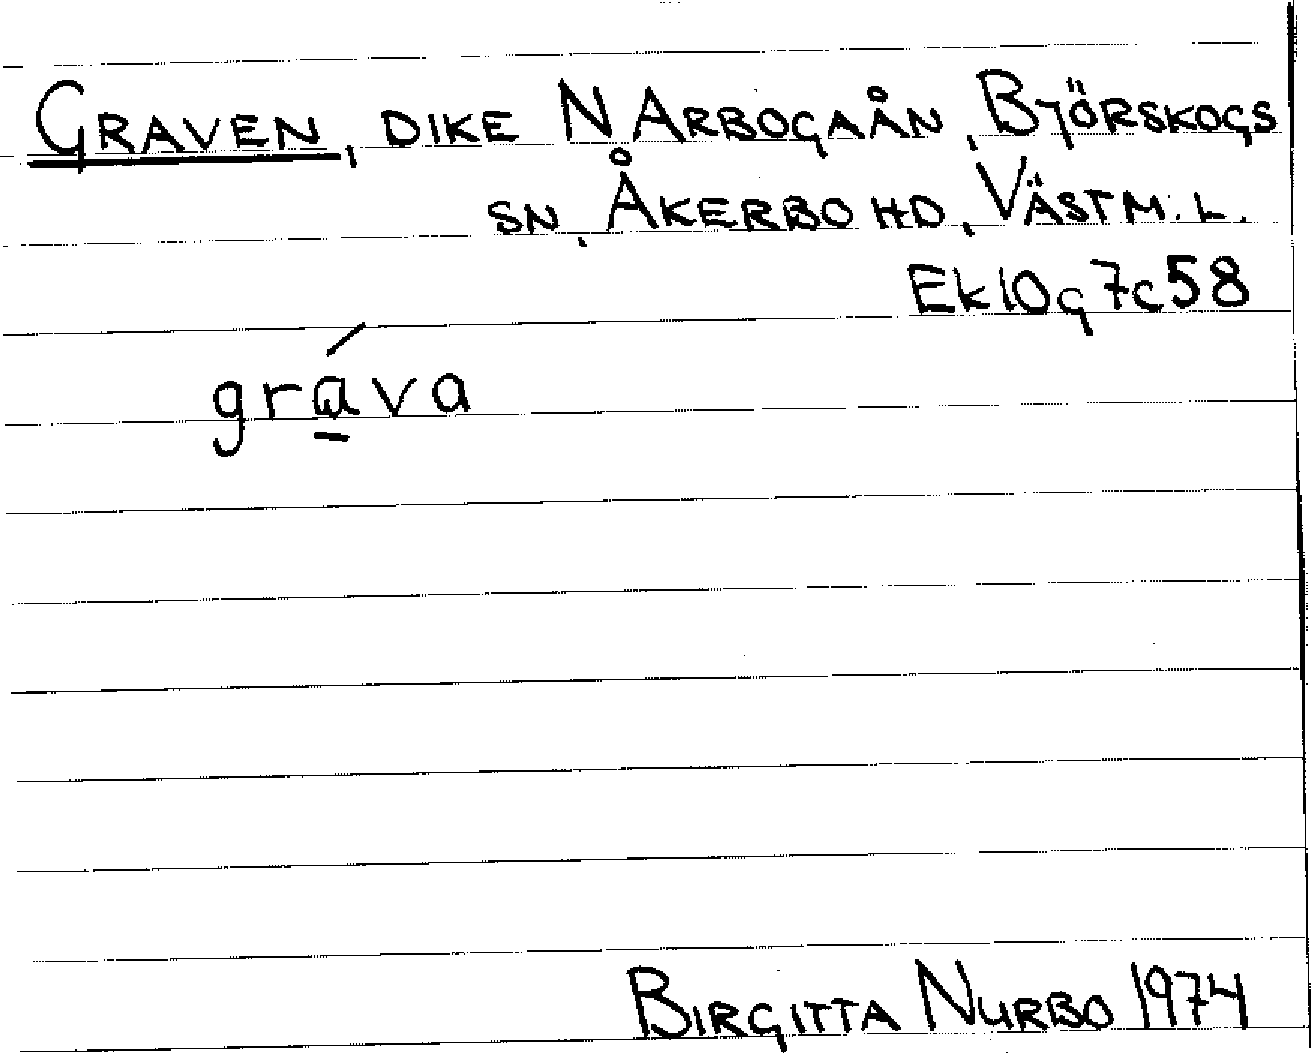 GRAVEN, DIKE N ARBOGAÅN, BJÖRSKOGS
SN, ÅKERBO HD, VÄSTM. L.
Ek 10g 7c58
grá̱va
BIRGITTA NURBO 1974